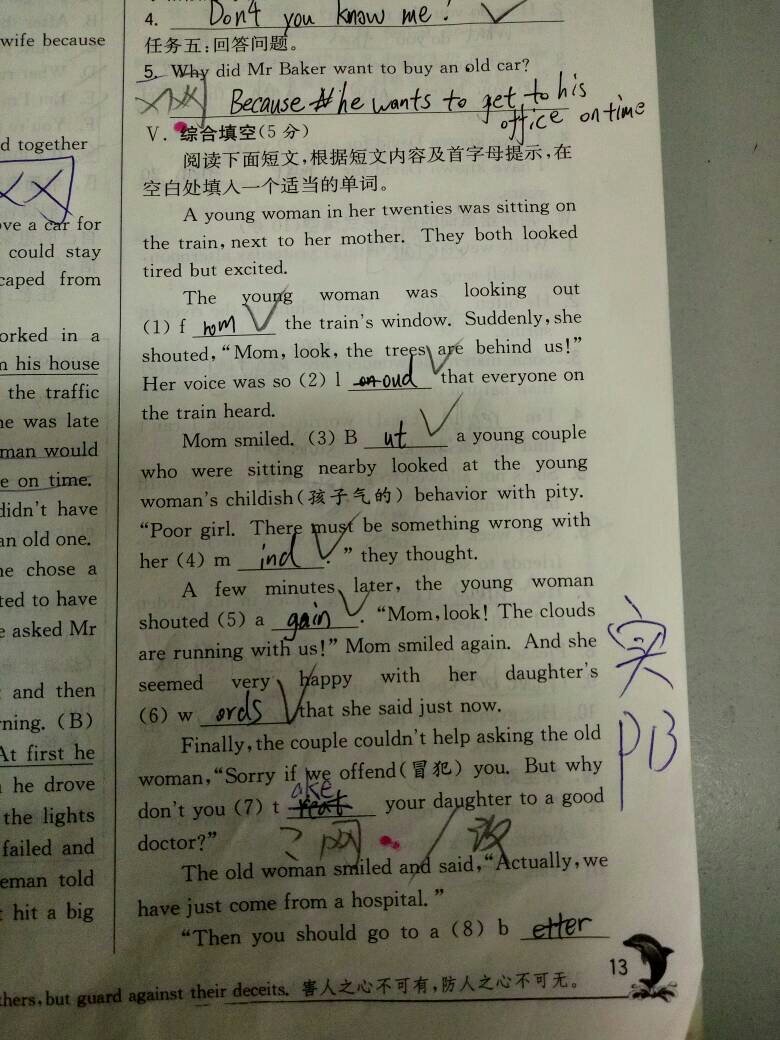 wife because
d together
ve a car for
could stay
caped from
orked in a
n his house
the traffic
he was late
man would
e on time.
didn't have
an old one.
he chose a
ted to have
e asked Mr
and then
rning. (B)
At first he
he drove
the lights
failed and
eman told
t hit a big
4. Don't you know me!
任务五:回答问题。
5. Why did Mr Baker want to buy an old car?
Because he wants to get to his
office on time
Ⅴ. 综合填空(5 分)
阅读下面短文,根据短文内容及首字母提示,在
空白处填入一个适当的单词。
A young woman in her twenties was sitting on
the train, next to her mother. They both looked
tired but excited.
The young woman was looking out
(1) f rom the train's window. Suddenly, she
shouted, “Mom, look, the trees are behind us!”
Her voice was so (2) l oud that everyone on
the train heard.
Mom smiled. (3) B ut a young couple
who were sitting nearby looked at the young
woman's childish(孩子气的) behavior with pity.
“Poor girl. There must be something wrong with
her (4) m ind. ” they thought.
A few minutes later, the young woman
shouted (5) a gain. “Mom, look! The clouds
are running with us!” Mom smiled again. And she
seemed very happy with her daughter's
(6) w ords that she said just now.
Finally, the couple couldn't help asking the old
woman, “Sorry if we offend(冒犯) you. But why
don't you (7) t ake your daughter to a good
doctor?”
The old woman smiled and said, “Actually, we
have just come from a hospital. ”
“Then you should go to a (8) b etter
13
thers, but guard against their deceits. 害人之心不可有,防人之心不可无。